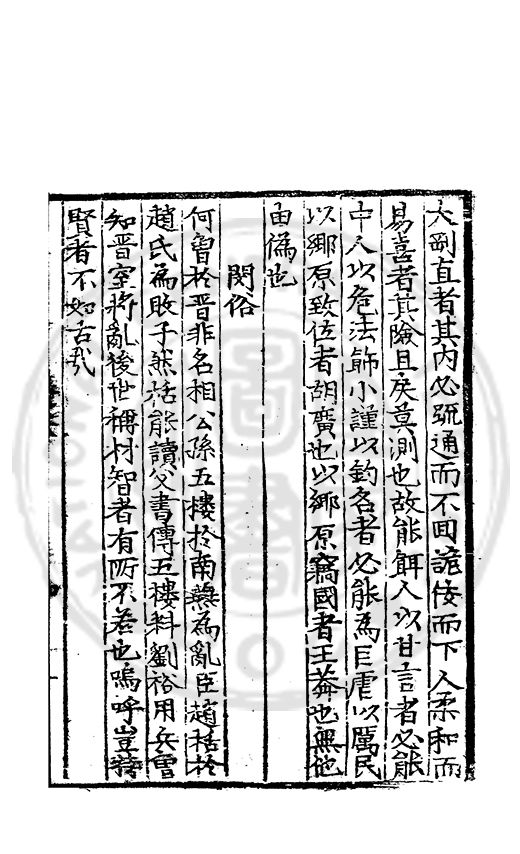 大剛直者其内必疏通而不囬詭佞而下人柔和而
易喜者其險且矦莫測也故能餌人以甘言者必能
中人以危法飾小謹以釣名者必能為巨虐以厲民
以鄉原致位者胡廣也以鄉原竊國者王莽也無他
由僞也
閔俗
何曽於晋非名相公孫五樓於南燕為亂臣趙括於
趙氏為敗子然括能讀父書傳五樓料劉裕用兵曽
知晋室将亂後世稱材智者有所不若也嗚呼豈特
賢者不如古㢤